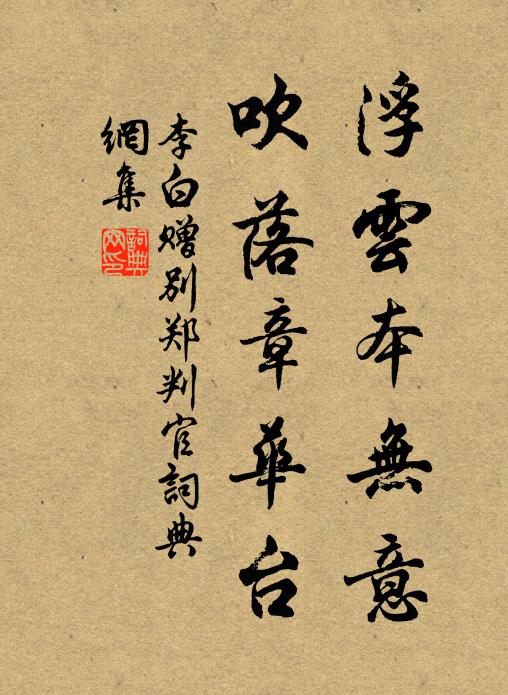 浮雲本無意
吹落章華台
李白赠别郑判官詞典
網集
詞典
网印